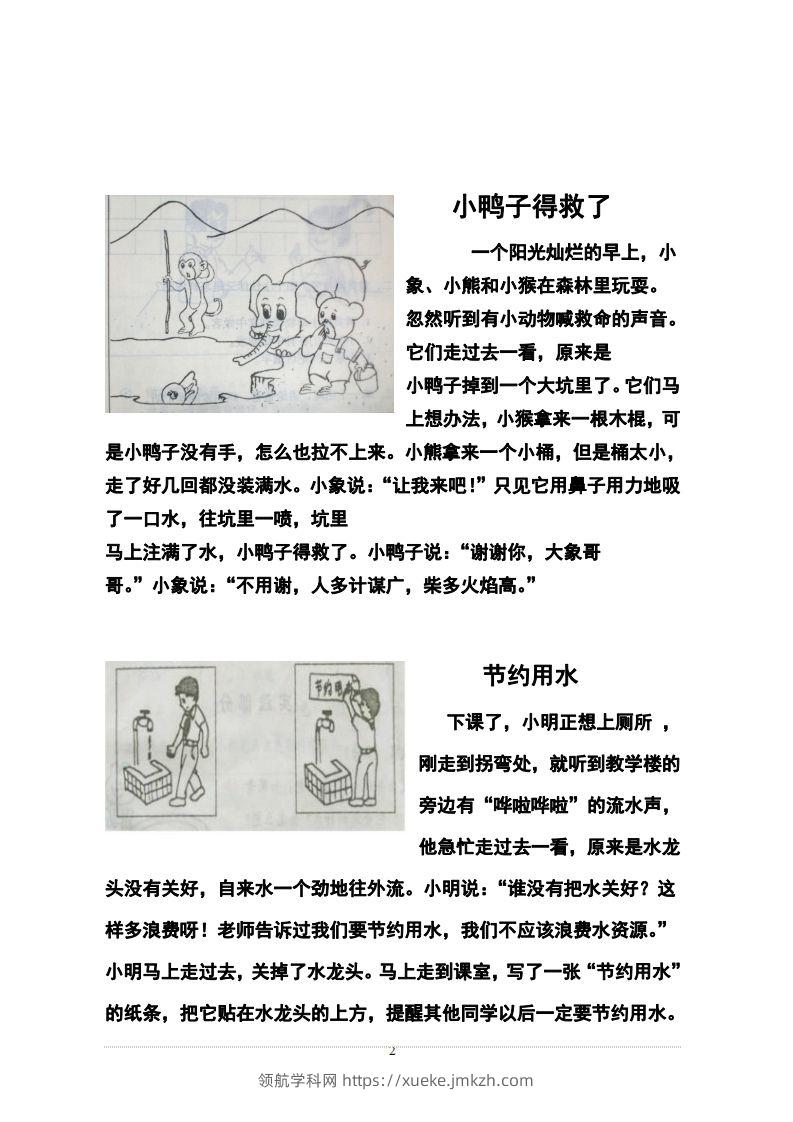 小鸭子得救了
一个阳光灿烂的早上，小
象、小熊和小猴在森林里玩耍。
忽然听到有小动物喊救命的声音。
它们走过去一看，原来是
小鸭子掉到一个大坑里了。它们马
上想办法，小猴拿来一根木棍，可
是小鸭子没有手，怎么也拉不上来。小熊拿来一个小桶，但是桶太小，
走了好几回都没装满水。小象说：“让我来吧！”只见它用鼻子用力地吸
了一口水，往坑里一喷，坑里
马上注满了水，小鸭子得救了。小鸭子说：“谢谢你，大象哥
哥。”小象说：“不用谢，人多计谋广，柴多火焰高。”
节约用水
节约用水
下课了，小明正想上厕所 ，
刚走到拐弯处，就听到教学楼的
旁边有“哗啦哗啦”的流水声，
他急忙走过去一看，原来是水龙
头没有关好，自来水一个劲地往外流。小明说：“谁没有把水关好？这
样多浪费呀！老师告诉过我们要节约用水，我们不应该浪费水资源。”
小明马上走过去，关掉了水龙头。马上走到课室，写了一张“节约用水”
的纸条，把它贴在水龙头的上方，提醒其他同学以后一定要节约用水。
2
领航学科网 https://xueke.jmkzh.com